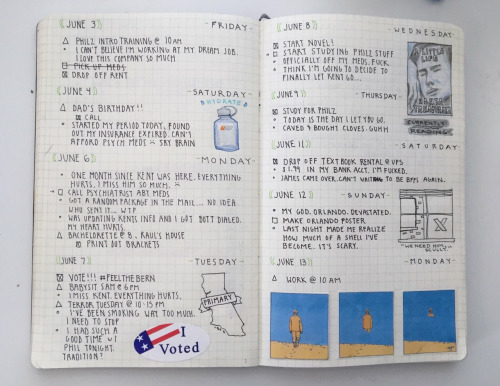 JUNE 3 - FRIDAY -
PHILZ INTRO TRAINING @ 10AM
I CAN'T BELIEVE I'M WORKING AT MY DREAM JOB.
I LOVE THIS COMPANY SO MUCH
PICK UP MEDS
DROP OFF RENT
JUNE 4 - SATURDAY -
HYDRATE
DAD'S BIRTHDAY!!
CALL
STARTED MY PERIOD TODAY, FOUND
OUT MY INSURANCE EXPIRED. CAN'T
AFFORD PSYCH MEDS SRY BRAIN
JUNE 6 - MONDAY -
ONE MONTH SINCE KENT WAS HERE. EVERYTHING
HURTS. I MISS HIM SO MUCH.
CALL PSYCHIATRIST ABT MEDS
GOT A RANDOM PACKAGE IN THE MAIL... NO IDEA
WHO SENT IT... WTF
WAS UPDATING KENTS INFO AND I GOT BUTT DIALED.
MY HEART HURTS.
BACHELORETTE @ 8, RAUL'S HOUSE
PRINT OUT BRACKETS
JUNE 7 - TUESDAY -
VOTE!!! #FEELTHEBERN
BABYSIT SAM @ 6PM
I MISS KENT. EVERYTHING HURTS.
TERROR TUESDAY @ 10:15 PM
I'VE BEEN SMOKING WAY TOO MUCH.
I NEED TO STOP
I HAD SUCH A
GOOD TIME W/
PHIL TONIGHT.
TRADITION?
PRIMARY
I Voted
JUNE 8 - WEDNESDAY -
START NOVEL!
START STUDYING PHILZ STUFF
OFFICIALLY OFF MY MEDS. FUCK.
THINK I'M GOING TO DECIDE TO
FINALLY LET KENT GO...
A LITTLE
LIFE
CURRENTLY
READING
JUNE 9 - THURSDAY -
STUDY FOR PHILZ
TODAY IS THE DAY I LET YOU GO.
CAVED & BOUGHT CLOTHES. GUHH
JUNE 11 - SATURDAY -
DROP OFF TEXTBOOK RENTAL @ UPS
$1.79 IN MY BANK ACT. I'M FUCKED.
JAMES CAME OVER. CAN'T WAIT TO BE BFFS AGAIN.
JUNE 12 - SUNDAY -
MY GOD. ORLANDO. DEVASTATED.
MAKE ORLANDO POSTER
LAST NIGHT MADE ME REALIZE
HOW MUCH OF A SHELL I'VE
BECOME. IT'S SCARY.
X
"WE NEED HIM"
JUNE 13 - MONDAY -
WORK @ 10AM